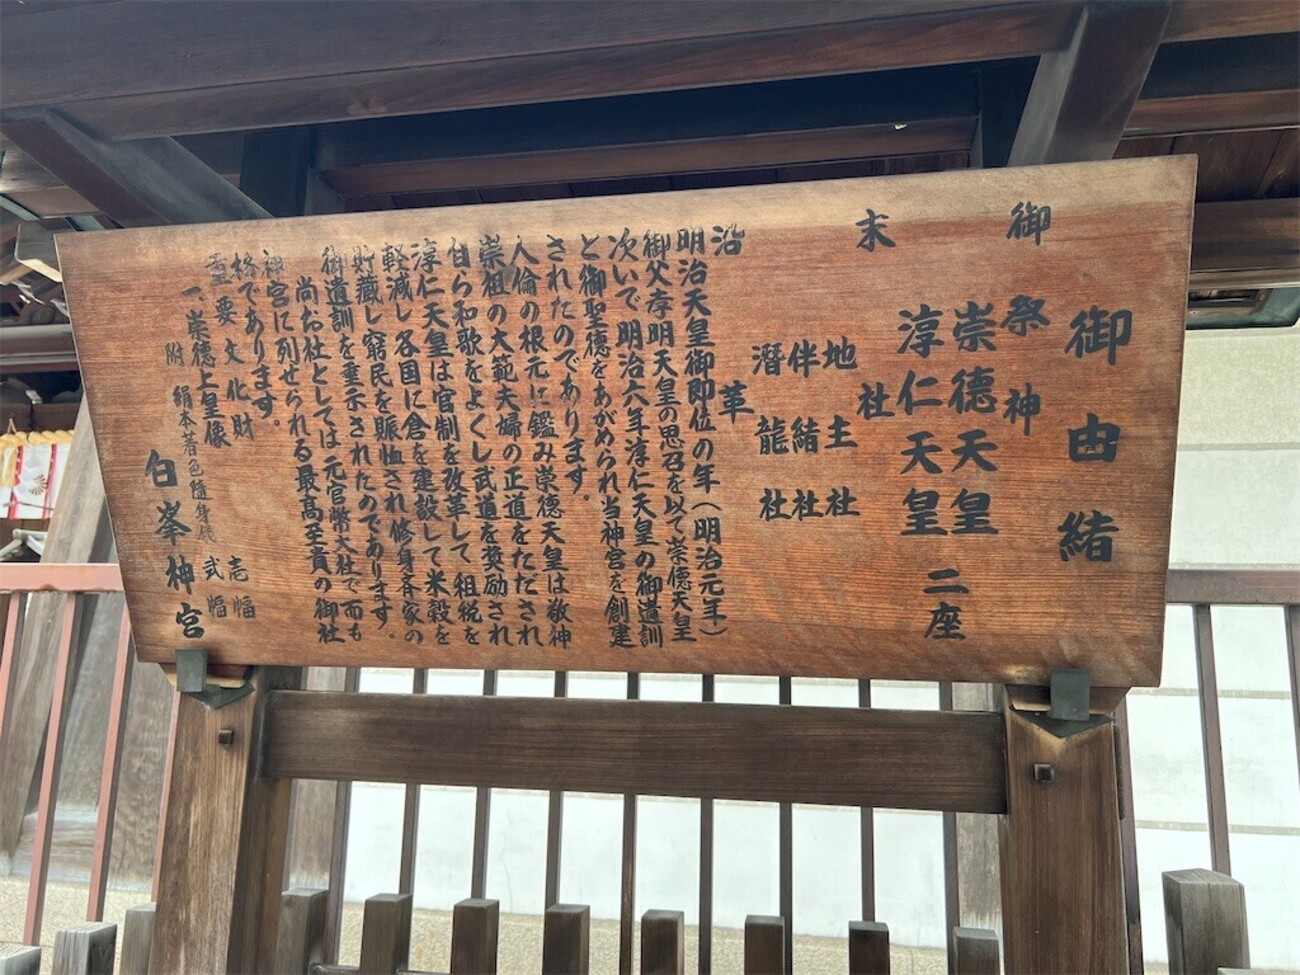 御由緒
御祭神
崇德天皇
淳仁天皇 二座
末社
地主社
伴緒社
潛龍社
沿革
明治天皇御即位の年(明治元年)
御父孝明天皇の思召を以て崇德天皇
次いで明治六年淳仁天皇の御遺訓
と御聖德をあがめられ当神宮を創建
されたのであります。
人倫の根元に鑑み崇德天皇は敬神
崇祖の大範夫婦の正道をただされ
自ら和歌をよくし武道を奨励され
淳仁天皇は官制を改革して租税を
軽減し各国に倉を建設して米穀を
貯蔵し窮民を賑恤され修身斉家の
御遺訓を垂示されたのであります。
尚お社としては元官幣大社で而も
神宮に列せられる最高至貴の御社
格であります。
重要文化財
一、崇德上皇像 壱幅
附 絹本著色隨身 弐幅
白峯神宮